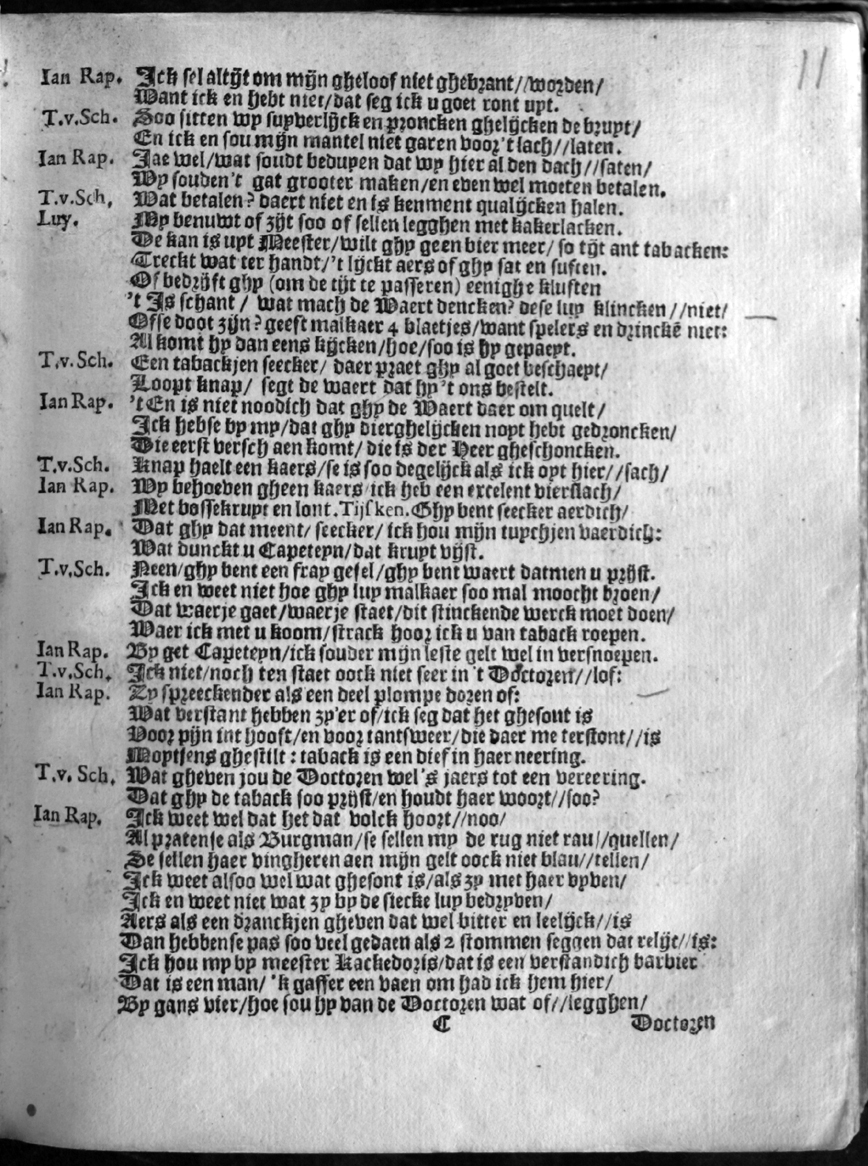 11
Ian Rap. Ick sel altijt om mijn gheloof niet ghebrant//worden/
Want ick en hebt niet/dat seg ick u goet ront uyt.
T.v.Sch. Soo sitten wy suyverlijck en proncken ghelijcken de bruyt/
En ick en sou mijn mantel niet garen voor't lach//laten.
Ian Rap. Jae wel/wat soudt beduyen dat wy hier al den dach//saten/
Wy souden't gat grooter maken/en even wel moeten betalen.
T.v.Sch. Wat betalen? daert niet en is kenment qualijcken halen.
Luy. My benuwt of zijt soo of sellen legghen met kakerlacken.
De kan is uyt Meester/wilt ghy geen bier meer/ so tijt ant tabacken:
Treckt wat ter handt/'t lijckt aers of ghy sat en suften.
Of bedrijft ghy (om de tijt te passeren) eenighe kluften
't Is schant / wat mach de Waert dencken? dese luy klincken //niet/
Ofse doot zijn? geeft malkaer 4 blaetjes/want spelers en drinckē niet:
Al komt hy dan eens kijcken/hoe/soo is hy gepaeyt.
T.v.Sch. Een tabackjen seecker/ daer praet ghy al goet beschaeyt/
Loopt knap/ segt de waert dat hy't ons bestelt.
Ian Rap. 't En is niet noodich dat ghy de Waert daer om quelt/
Ick hebse by my/dat ghy dierghelijcken noyt hebt gedroncken/
Die eerst versch aen komt/ die is der Heer gheschoncken.
T.v.Sch. Knap haelt een kaers/se is soo degelijck als ick oyt hier//sach/
Ian Rap. Wy behoeven gheen kaers/ick heb een excelent vierslach/
Met bossekruyt en lont. Tijsken. Ghy bent seecker aerdich/
Ian Rap. Dat ghy dat meent/ seecker/ ick hou mijn tuychjen vaerdich:
Wat dunckt u Capeteyn/dat kruyt vijst.
T.v.Sch. Neen/ghy bent een fray gesel/ghy bent waert datmen u prijst.
Ick en weet niet hoe ghy luy malkaer soo mal moocht broen/
Dat waerje gaet/waerje staet/dit stinckende werck moet doen/
Waer ick met u koom/strack hoor ick u van taback roepen.
Ian Rap. By get Capeteyn/ick souder mijn leste gelt wel in versnoepen.
T.v.Sch. Ick niet/noch ten staet oock niet seer in 't Doctoren//lof:
Ian Rap. Zy spreeckender als een deel plompe doren of:
Wat verstant hebben zy'er of/ick seg dat het ghesont is
Voor pijn int hooft/en voor tantsweer/die daer me terstont//is
Moytjens ghestilt : taback is een dief in haer neering.
T.v. Sch. Wat gheven jou de Doctoren wel 's jaers tot een vereering.
Dat ghy de taback soo prijst/en houdt haer woort//soo?
Ian Rap. Ick weet wel dat het dat volck hoort//noo/
Al pratense als Burgman/se sellen my de rug niet rau//quellen/
Se sellen haer vingheren aen mijn gelt oock niet blau//tellen/
Ick weet alsoo wel wat ghesont is/als zy met haer vyven/
Ick en weet niet wat zy by de siecke luy bedryven/
Aers als een dranckjen gheven dat wel bitter en leelijck//is
Dan hebbense pas soo veel gedaen als 2 stommen seggen dat relijt//is:
Ick hou my by meester Kackedoris/dat is een verstandich barbier
Dat is een man/ 'k gaffer een vaen om had ick hem hier/
By gans vier/hoe sou hy van de Doctoren wat of//legghen/
C Doctoren